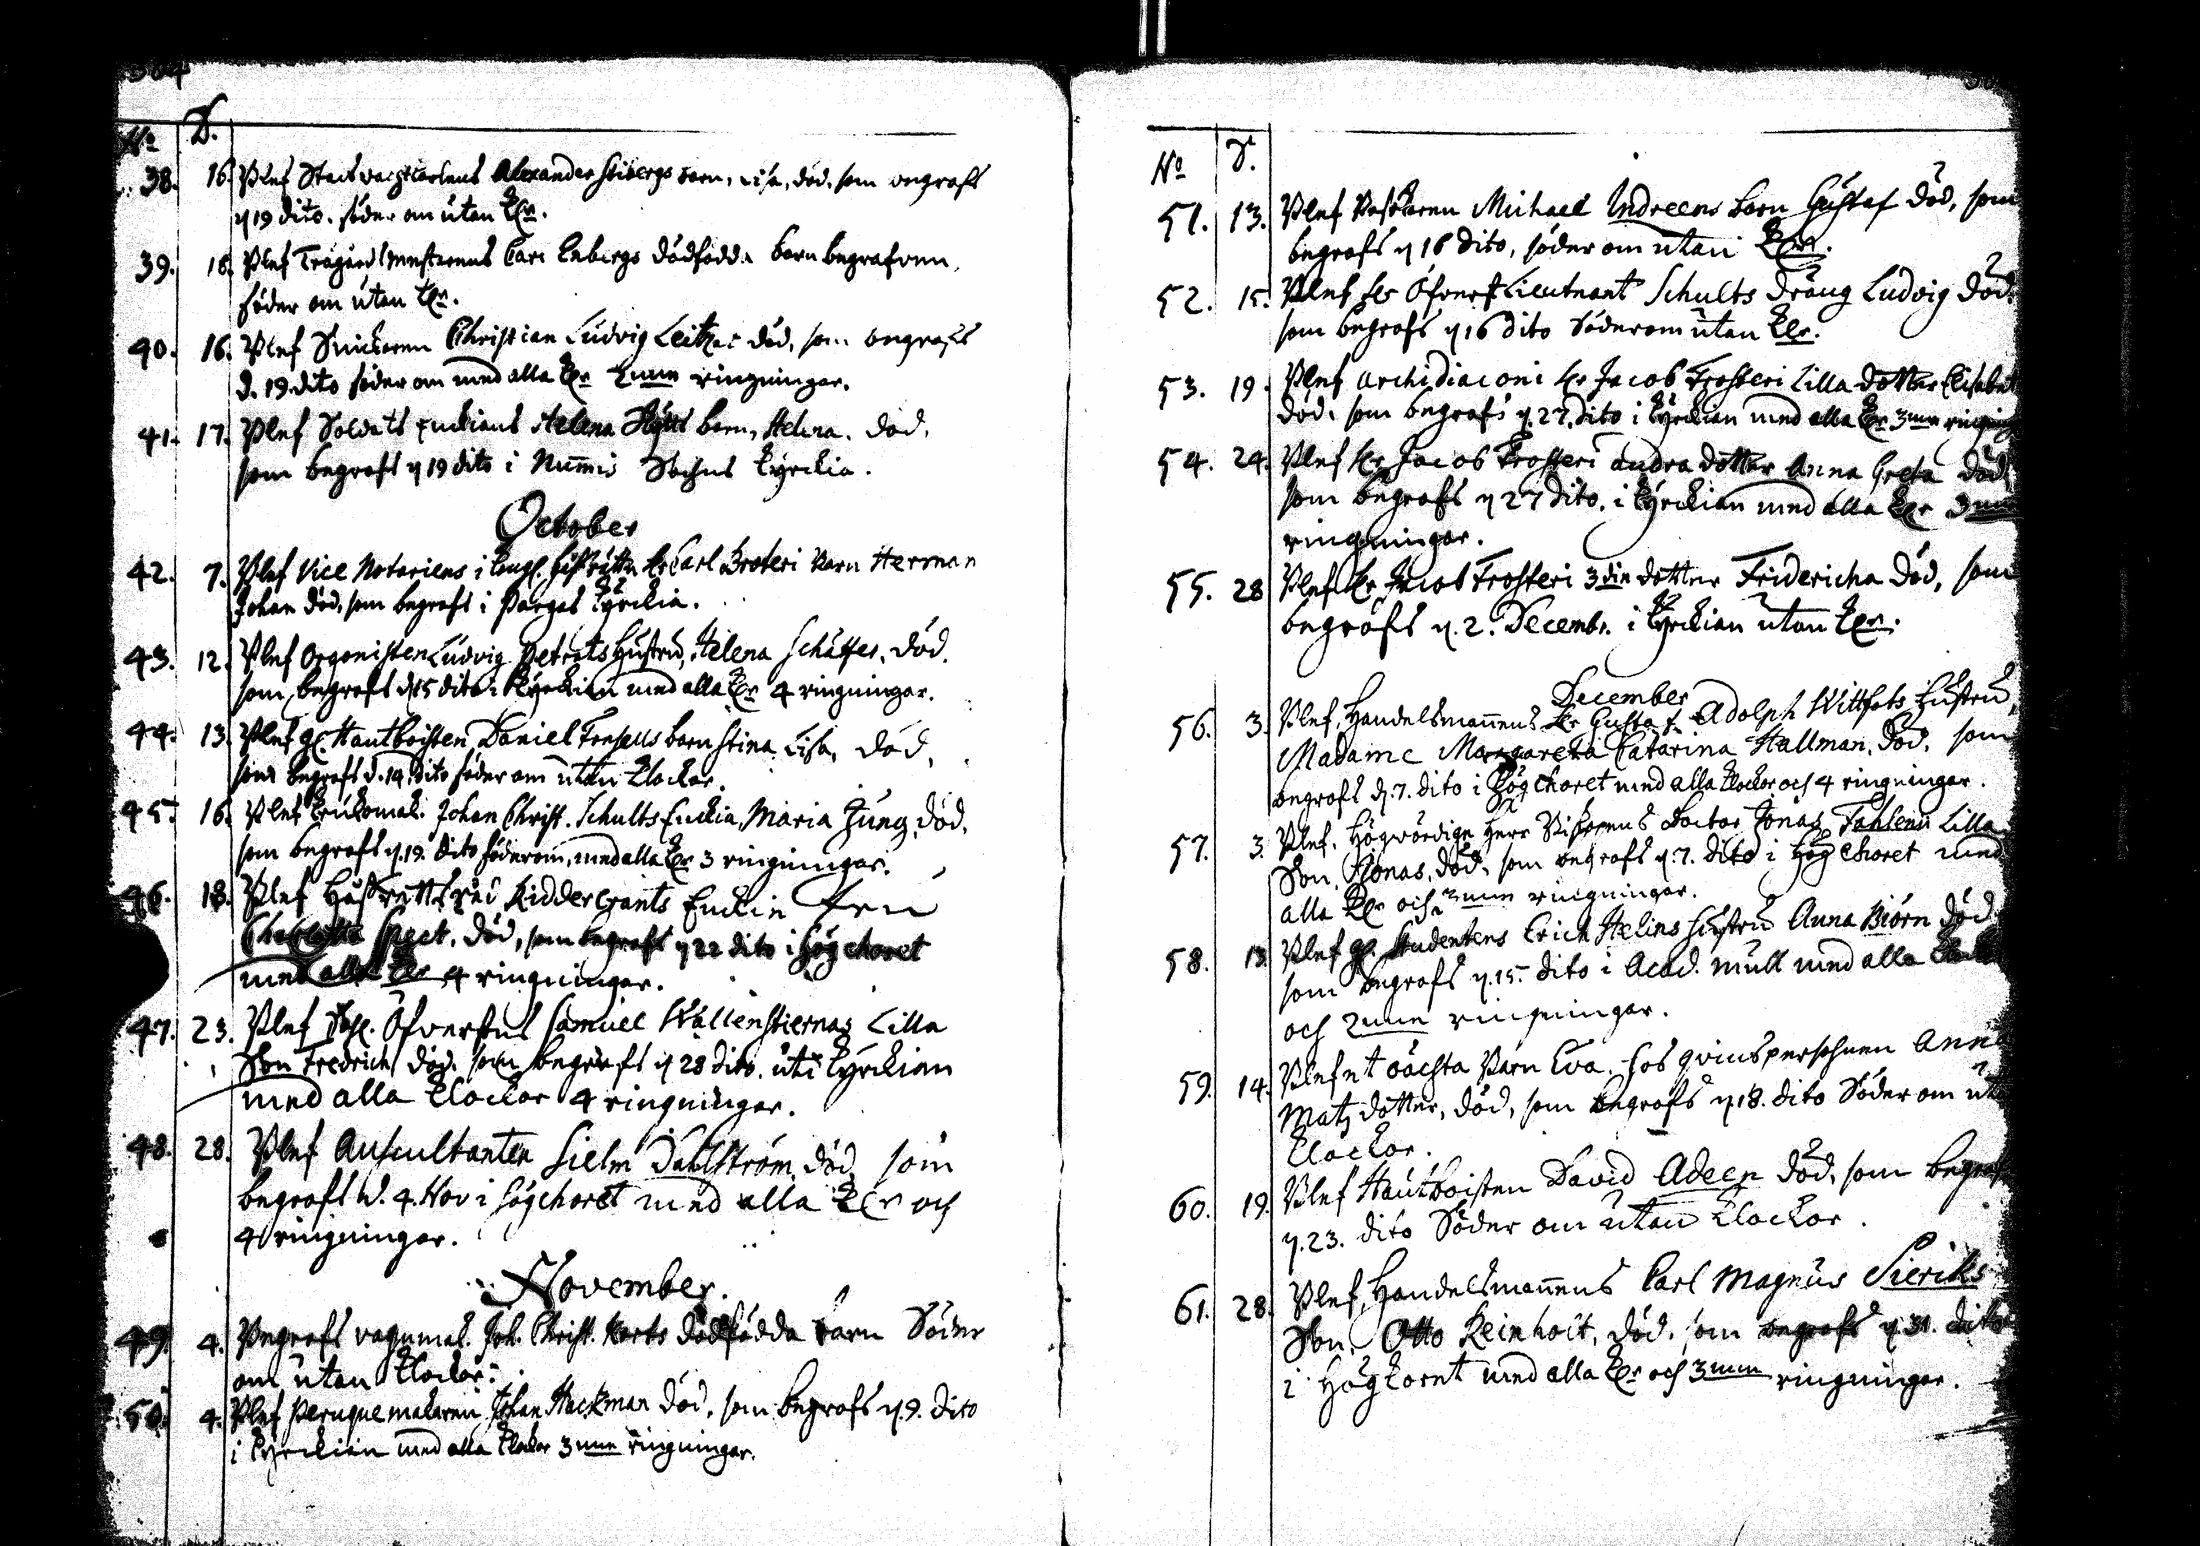 304
No D.
38. 16. Blef Stads vachtkarlens Alexander Stibergs barn, Lisa, död, som begrafs
d 19 dito. söder om utan klr.
39. 18. Blef Trägårdsmestarens Carl Enbergs dödfödda barn begrafven,
söder om utan klr.
40. 16. Blef Snickaren Christian Ludvig Leitz död, som begrafs
d. 19. dito söder om med alla klr 2nne ringningar.
41. 17. Blef Soldats Enckians Helena barn, Helena. död.
som begrafs d 19 dito i Nummis Sochns kyrckia.
October
42. 7. Blef Vice Notariens i Kongl. Håfrätten Hr Carl Broteri barn Herman
Johan död, som begrafs i Pargas kyrckia.
43. 12. Blef Organisten Ludvig Petrats hustru, Helena Schäffer, död.
som begrafs d 15 dito i kyrckian med alla klr 4 ringningar.
44. 13. Blef gl. Hautboisten Daniel barn Stina Lisa, död,
som begrafs d. 19. dito söder om utan klockor.
45. 16. Blef Krukomak. Johan Christ. Schults Enckia, Maria Jung, död,
som begrafs d. 19. dito söderom, med alla klr 3 ringningar.
46. 18. Blef Håfrätts råd Riddercrants Enckie Fru
Charlotta död, som begrafs d 22 dito i högchoret
med alla klr 4 ringningar.
47. 23. Blef Öfverstens Samuel Wallenstiernas Lilla
Son Fredrich död, som begrafs d 28 dito. uti kyrckian
med alla klockor 4 ringningar.
48. 28. Blef Auscultanten Dahlström död som
begrafs d. 4. Nov i högchoret med alla klr och
4 ringningar.
November.
49. 4. Begrafs vagnmak. Joh. Christ. Korts dödfödda barn Söder
om utan klockor.
50. 4. Blef Peruquemakaren Johan Hackman död, som begrafs d. 9. dito
i kyrckian med alla klockor 3nne ringningar.
No D.
51. 13. Blef Michael Indreens barn Gustaf död, som
begrafs d 16 dito, söder om utan klr.
52. 15. Blef Hr Öfverst Lieutnant Schults dräng Ludvig död.
som begrafs d 16 dito Söderom utan klr.
53. 19. Blef Archidiaconi Hr Jacob Frosteri Lilla dotter Elisabet
död. som begrafs d. 27. dito i kyrckian med alla klr 3nne ringning
54. 24. Blef Hr Jacob Frosteri andra dotter Anna Greta död
som begrafs d 27 dito. i kyrckian med alla klr 3nne
ringningar.
55. 28 Blef Hr Jacob Frosteri 3die dotter Fridericha död, som
begrafs d. 2. Decembr. i kyrckian utan klr.
December
56. 3. Blef Handelsmannens Hr Gustaf Adolph Wittfots hustru,
Madame Margareta Catarina Hallman, död, som
begrafs d. 7. dito i högchoret med alla klockor och 4 ringningar.
57. 3. Blef. Högvördige Herr Biskopens Doctor Jonas Fahlenii Lilla
Son, Jonas, död, som begrafs d. 7. dito i hög choret med
alla klr och 2nne ringningar.
58. 13. Blef gl. Studentens Erich Helins hustru Anna Biörn död
som begrafs d. 15. dito i Acad. mull med alla
och 2nne ringningar.
59. 14. Blef et oächta barn Eva. hos qvinspersohnen Anna
Matz dotter, död, som begrafs d 18. dito Söder om
klockor.
60. 19. Blef Hautboisten David Adeen död, som begrafs
d. 23. dito Söder om utan klockor.
61. 28. Blef, Handelsmannens Carl Magnus Sieriks
Son. Otto Reinholt, död. som begrafs d. 31. dito
i högkoret med alla klr och 3nne ringningar.